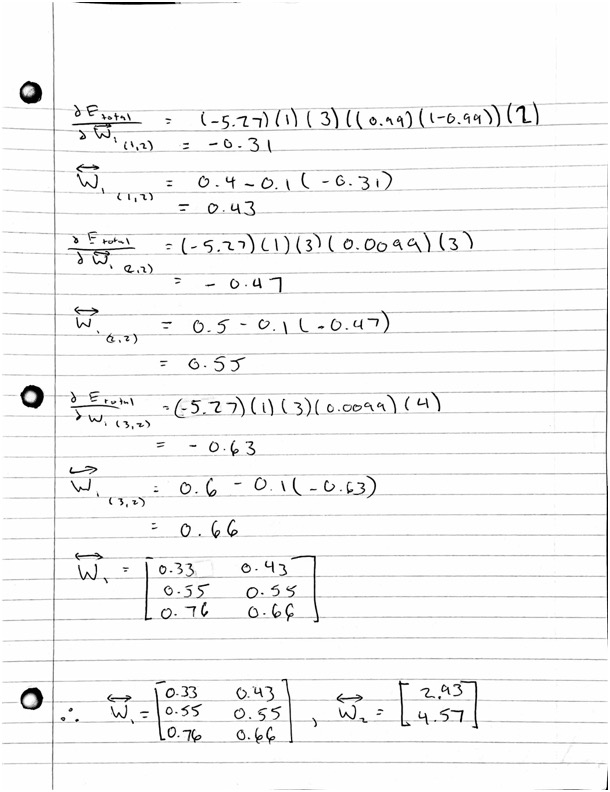 ∂E_total/∂W⃡₁ (1,2) = (-5.27)(1)(3)((0.99)(1-0.99))(2)
= -0.31
W⃡₁ (1,2) = 0.4 - 0.1(-0.31)
= 0.43
∂E_total/∂W⃡₁ (2,2) = (-5.27)(1)(3)(0.0099)(3)
= -0.47
W⃡₁ (2,2) = 0.5 - 0.1(-0.47)
= 0.55
∂E_total/∂W₁ (3,2) = (-5.27)(1)(3)(0.0099)(4)
= -0.63
W⃡₁ (3,2) = 0.6 - 0.1(-0.63)
= 0.66
W⃡₁ = [0.33 0.43
0.55 0.55
0.76 0.66]
∴ W⃡₁ = [0.33 0.43; 0.55 0.55; 0.76 0.66], W⃡₂ = [2.93; 4.57]